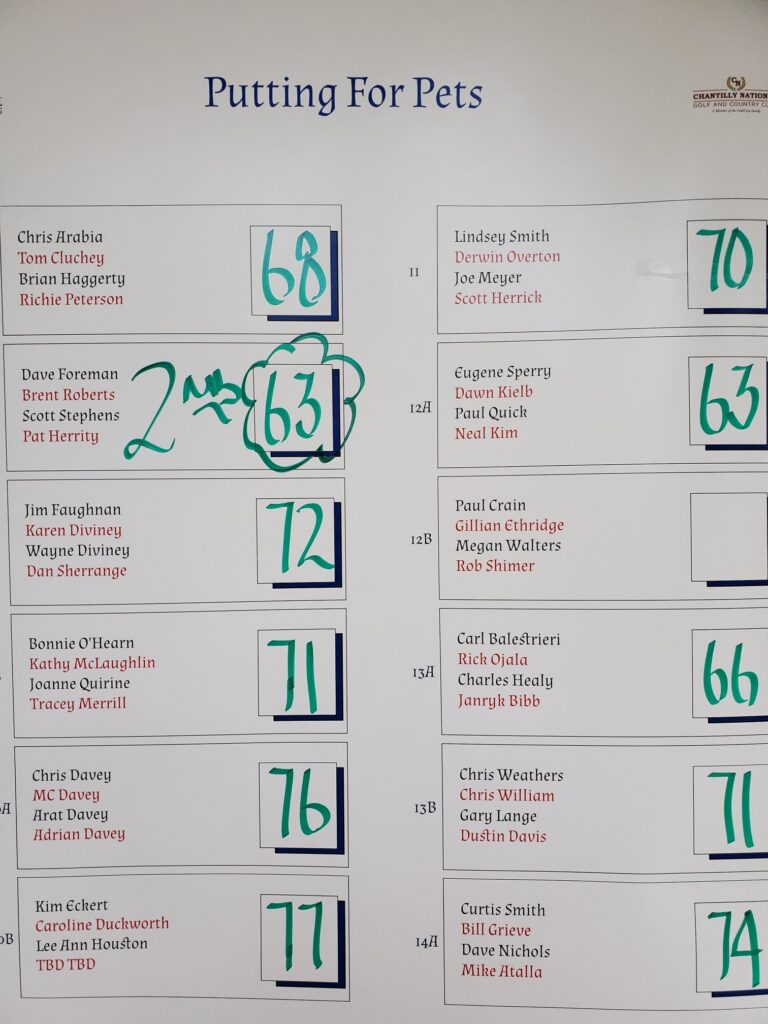 Putting For Pets
CN
CHANTILLY NATION
GOLF AND COUNTRY CL
Chris Arabia
Tom Cluchey
Brian Haggerty
Richie Peterson
68
Dave Foreman
Brent Roberts
Scott Stephens
Pat Herrity
2
63
Jim Faughnan
Karen Diviney
Wayne Diviney
Dan Sherrange
72
Bonnie O'Hearn
Kathy McLaughlin
Joanne Quirine
Tracey Merrill
71
A
Chris Davey
MC Davey
Arat Davey
Adrian Davey
76
0B
Kim Eckert
Caroline Duckworth
Lee Ann Houston
TBD TBD
77
11
Lindsey Smith
Derwin Overton
Joe Meyer
Scott Herrick
70
12A
Eugene Sperry
Dawn Kielb
Paul Quick
Neal Kim
63
12B
Paul Crain
Gillian Ethridge
Megan Walters
Rob Shimer
13A
Carl Balestrieri
Rick Ojala
Charles Healy
Janryk Bibb
66
13B
Chris Weathers
Chris William
Gary Lange
Dustin Davis
71
14A
Curtis Smith
Bill Grieve
Dave Nichols
Mike Atalla
74